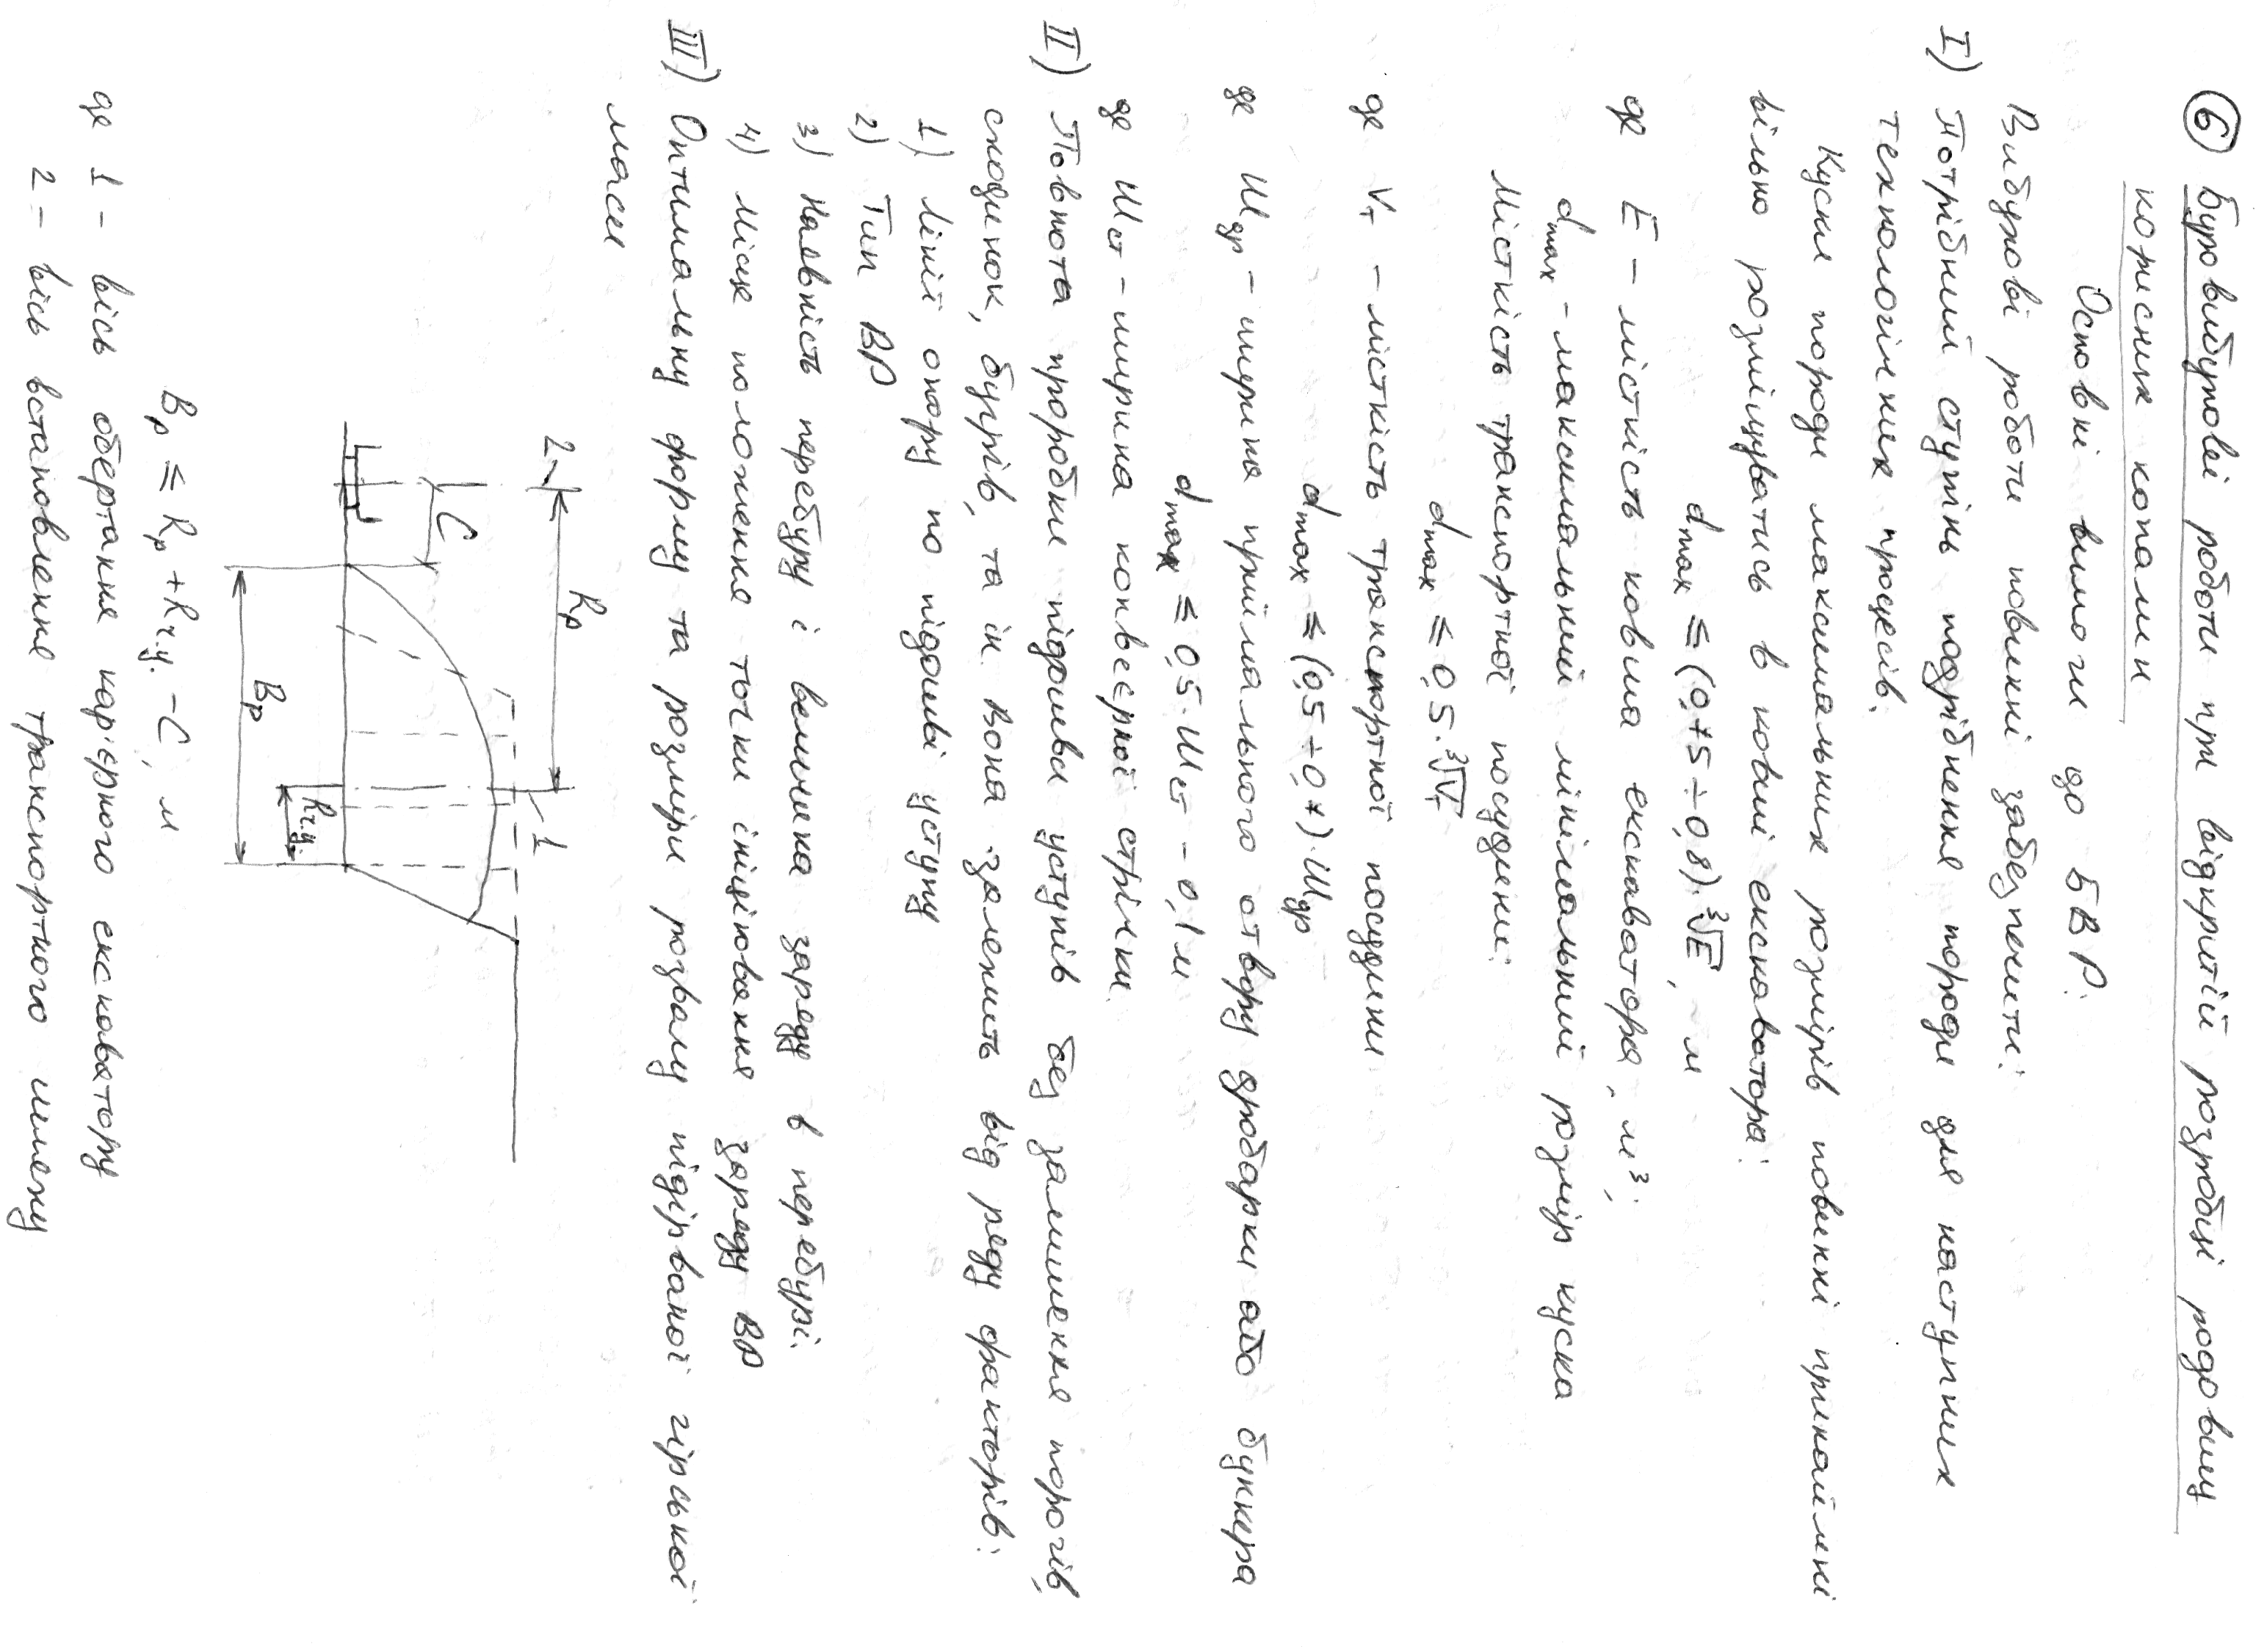 6 Буровибухові роботи при відкритій розробці родовищ
корисних копалин
Основні вимоги до БВР:
Вибухові роботи повинні забезпечити:
I) Потрібний ступінь подрібнення породи для наступних
технологічних процесів.
Куски породи максимальних розмірів повинні принаймні
вільно розміщуватись в ковші екскаватора:
dmax ≤ (0,75 ÷ 0,8)·∛E, м
де E – місткість ковша екскаватора, м³;
dmax – максимальний лінійний розмір куска
Місткість транспортної посудини:
dmax ≤ 0,5·∛Vт
де Vт – місткість транспортної посудини
dmax ≤ (0,5 ÷ 0,7)·Шдр
де Шдр – ширина приймального отвору дробарки або бункера
dmax ≤ 0,5·Шст – 0,1м
де Шст – ширина конвеєрної стрічки
II) Повнота проробки підошви уступів без залишення порогів,
сходинок, бугрів, та ін. Вона залежить від ряду факторів:
1) Лінії опору по підошві уступу
2) Тип ВР
3) Наявність перебуру і величина заряду в перебурі.
4) Місце положення точки ініціювання заряду ВР
III) Оптимальну форму та розміри розвалу підірваної гірської
маси
2
Rр
1
C
Rч.у.
Вр
Вр ≤ Rр + Rч.у. – C, м
де 1 – вісь обертання кар'єрного екскаватору
2 – вісь встановлення транспортного шляху